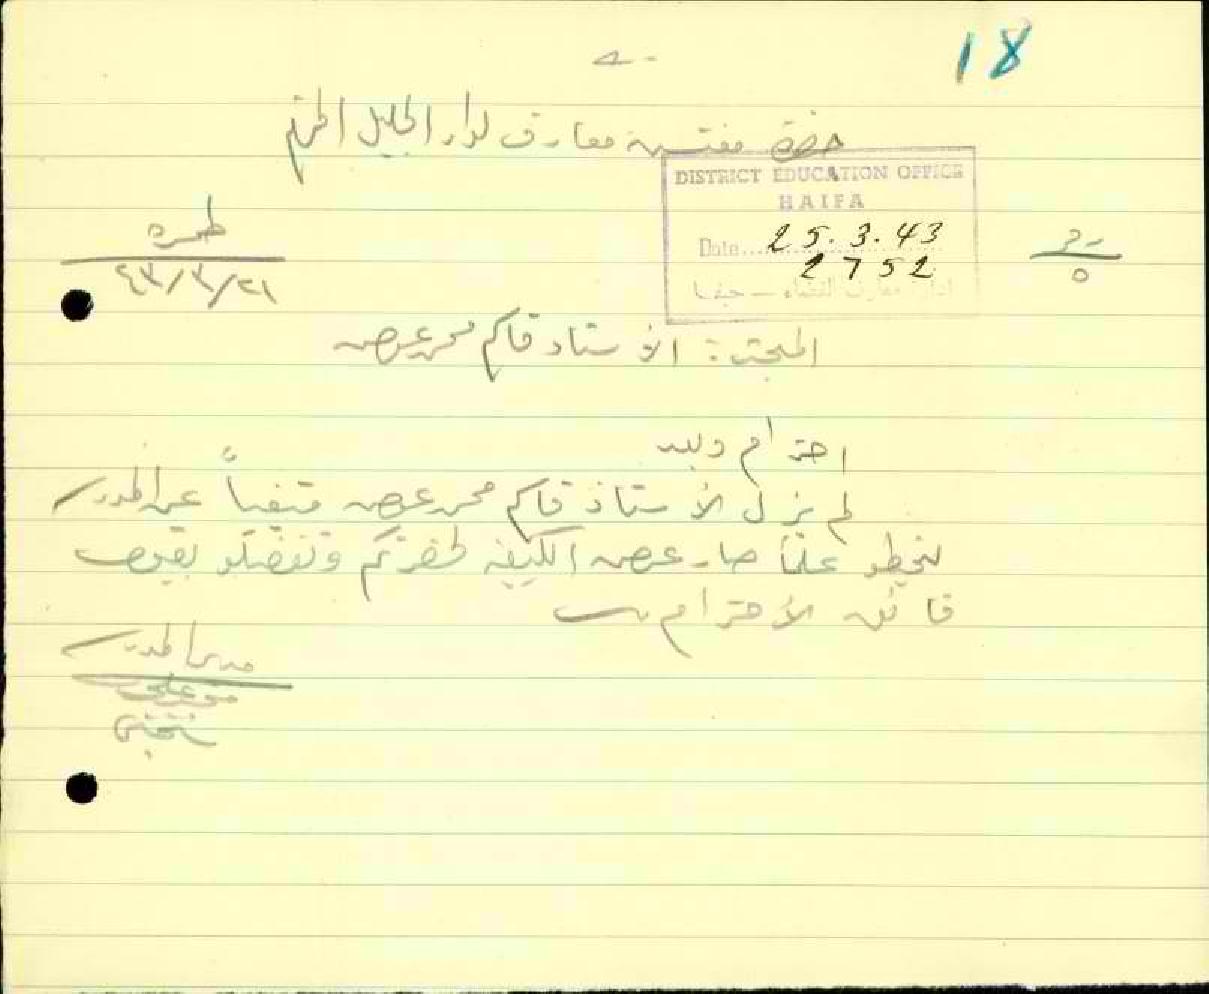 18
حضرة مفتش معارف لواء الجليل المحترم
DISTRICT EDUCATION OFFICE
HAIFA
Date 25.3.43
2752
ادارة معارف القضاء — حيفا
طمره
٢١/٣/٤٣
٥
المبحث: الأستاذ قاسم محمد عوض
احترام وبعد
لم يزل الأستاذ قاسم محمد عوض متغيباً عن المدرسة
لتحيطو علماً صار عرض الكيفية لحضرتكم وتفضلو بقبول
فائق الاحترام
مدير المدرسة